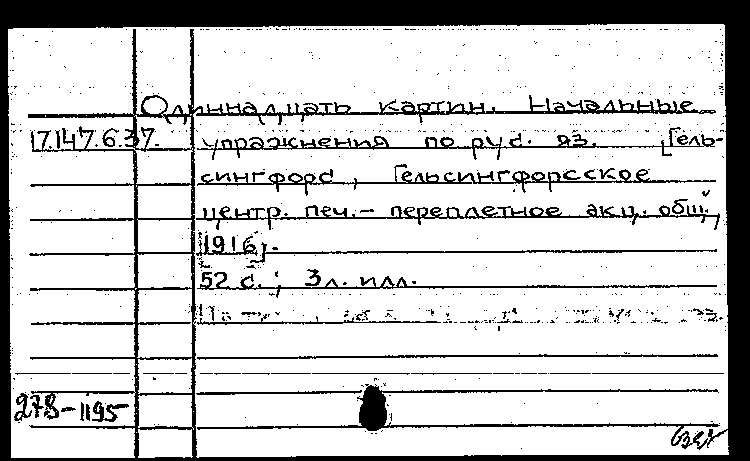 Одиннадцать картин. Начальные
17.147.6.37. упражнения по рус. яз. [Гель-
сингфорс, Гельсингфорсское
центр. печ.- переплетное акц. общ.,
1916].
52 с.; 3 л. илл.
278-1195